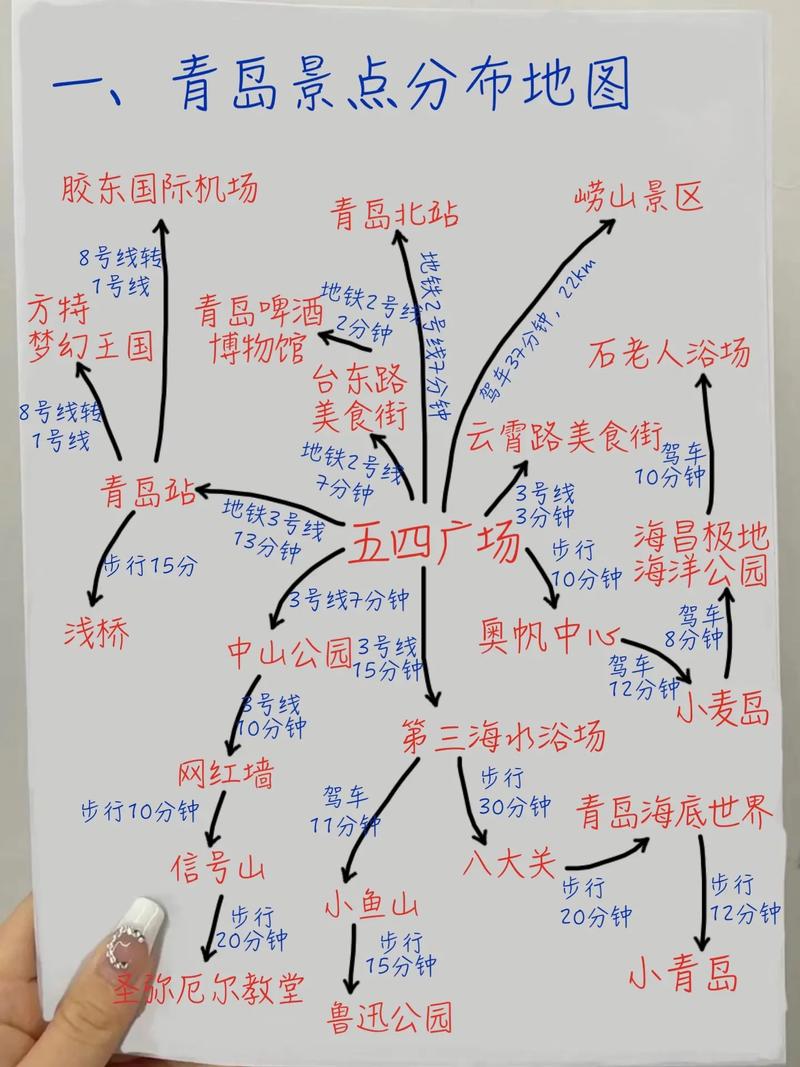 一、青岛景点分布地图
胶东国际机场
青岛北站
崂山景区
8号线转
1号线
方特
梦幻王国
青岛啤酒
博物馆
地铁2号线
2分钟
地铁2号线7分钟
驾车37分钟，22km
台东路
美食街
石老人浴场
8号线转
1号线
地铁2号线
7分钟
云霄路美食街
驾车
10分钟
青岛站
地铁3号线
13分钟
五四广场
3号线
3分钟
海昌极地
海洋公园
步行15分
步行
10分钟
浅桥
3号线7分钟
中山公园
3号线
15分钟
奥帆中心
驾车
8分钟
驾车
12分钟
小麦岛
3号线
10分钟
第三海水浴场
网红墙
步行10分钟
驾车
11分钟
步行
30分钟
青岛海底世界
信号山
小鱼山
八大关
步行
20分钟
步行
12分钟
步行
20分钟
步行
15分钟
小青岛
圣弥厄尔教堂
鲁迅公园